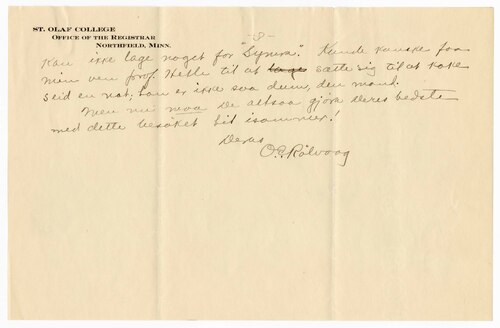 ST. OLAF COLLEGE
OFFICE OF THE REGISTRAR
NORTHFIELD, MINN.
-3-
Kan ikke lage noget for "Symra". Kunde kanske faa
min ven prof. Helle til at lage sætte sig til at koke
seid en nat; han er ikke saa dum, den mand.
Men nu maa De altsaa gjøre Deres bedste
med dette besøket hit isommer!
Deres
O.E. Rölvaag